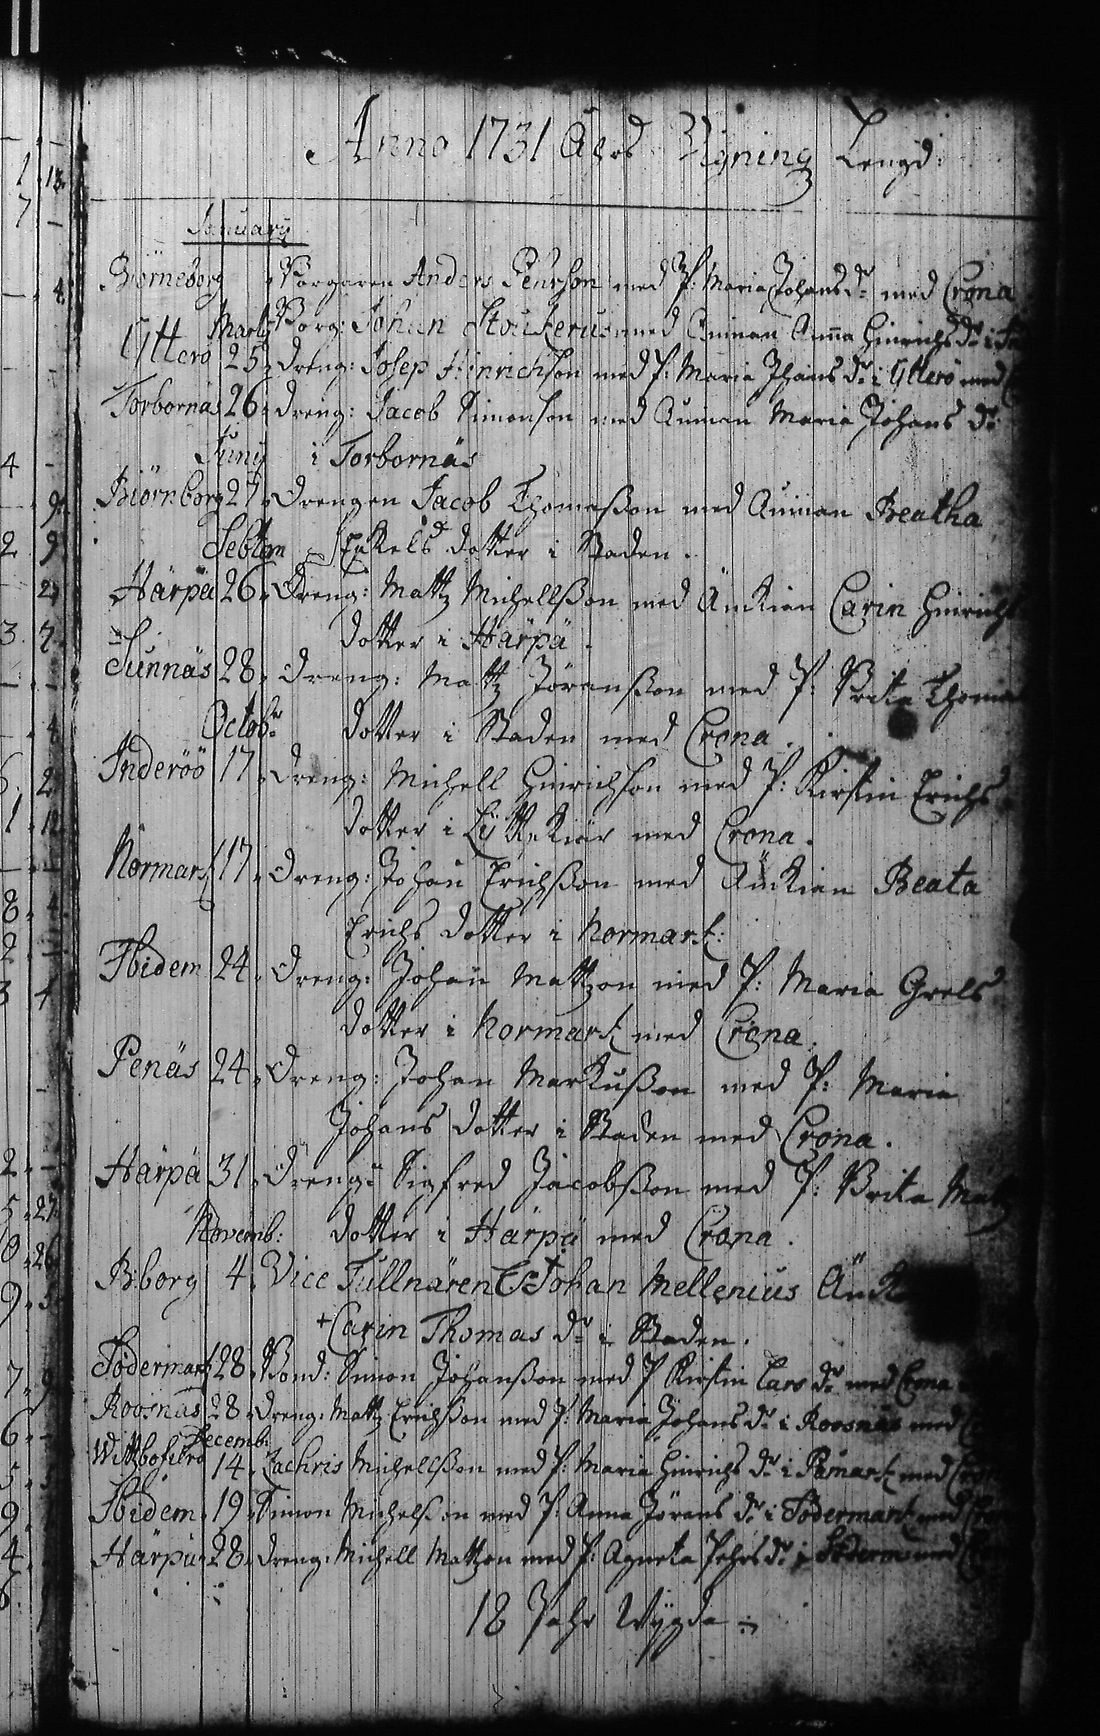 Anno 1731 Åhrs Wigning Lengd
January
Biörneborg Borgaren Anders Pehrson med P: Maria Johans dr med Crona
Marty Borg: Johan Stoukerus med Änkian Anna Hinrichs dr i
Ytterö 25 Dreng: Josep Hinrichson med P: Maria Jhans dr i Ytterö med
Torbornäs 26 Dreng: Jacob Simonson med Änkian Maria Johans dr
Juny i Torbornäs
Biörnborg 27 Drengen Jacob Thomasson med Änkian Beatha
Sebtem Eskels dotter i Staden.
Harpå 26 Dreng: Mattz Michellsson med Änkian Carin Hinrichs
dotter i Harpå.
Sunnäs 28 Dreng: Mattz Jöransson med P: Brita Thomas
Octobr dotter i Staden med Crona.
Inderöö 17 Dreng: Michell Hinrichson med P: Kirstin Erichs
dotter i Lyttkiär med Crona.
Normark 17 Dreng: Johan Erichsson med Änkian Beata
Erichs dotter i Normark:
Ibidem 24 Dreng: Johan Mattzon med P: Maria Grels
dotter i Normark med Crona.
Penäs 24 Dreng: Johan Markusson med P: Maria
Johans dotter i Staden med Crona.
Harpå 31 Dreng: Sigfred Jacobsson med P: Brita Matz
Novemb: dotter i Harpå med Crona.
B:borg 4 Vice Tullnären Johan Mellenius Änk
+Carin Thomas dr i Staden.
Södermark 28 Bond: Simon Johansson med P Kirstin Lars dr med Crona
Roosnäs 28 Dreng: Mattz Erichsson med P: Maria Johans dr i Roosnäs med
Decemb:
Wittzbofilrö 14 Zachris Michellsson med P: Maria Hinrichs dr i Påmark med Crona
Ibidem 19 Simon Michelson med P: Anna Jörans dr i Södermark med Crona
Harpå 28 Dreng: Michell Mattzon med P: Agneta Pehrs dr i Söderm: med
18 Pahr Wygde